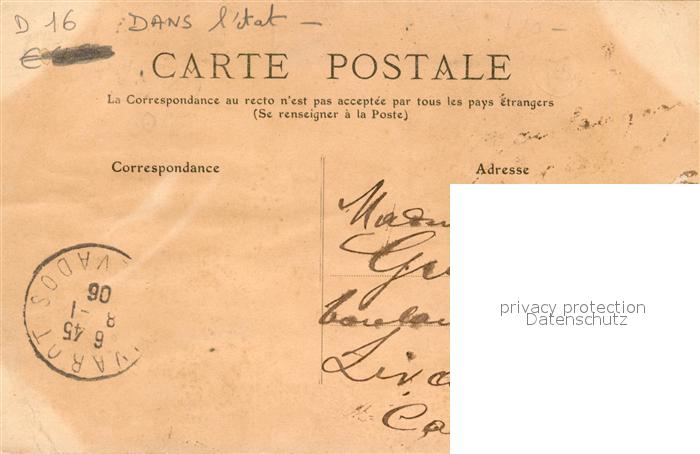 D 16 DANS l'état —
€
CARTE POSTALE
La Correspondance au recto n'est pas acceptée par tous les pays étrangers
(Se renseigner à la Poste)
Correspondance
Adresse
Madm
Gr
boulan
Liva
Ca
VAROT
VADOS
6 45
8 -1
06
privacy protection
Datenschutz